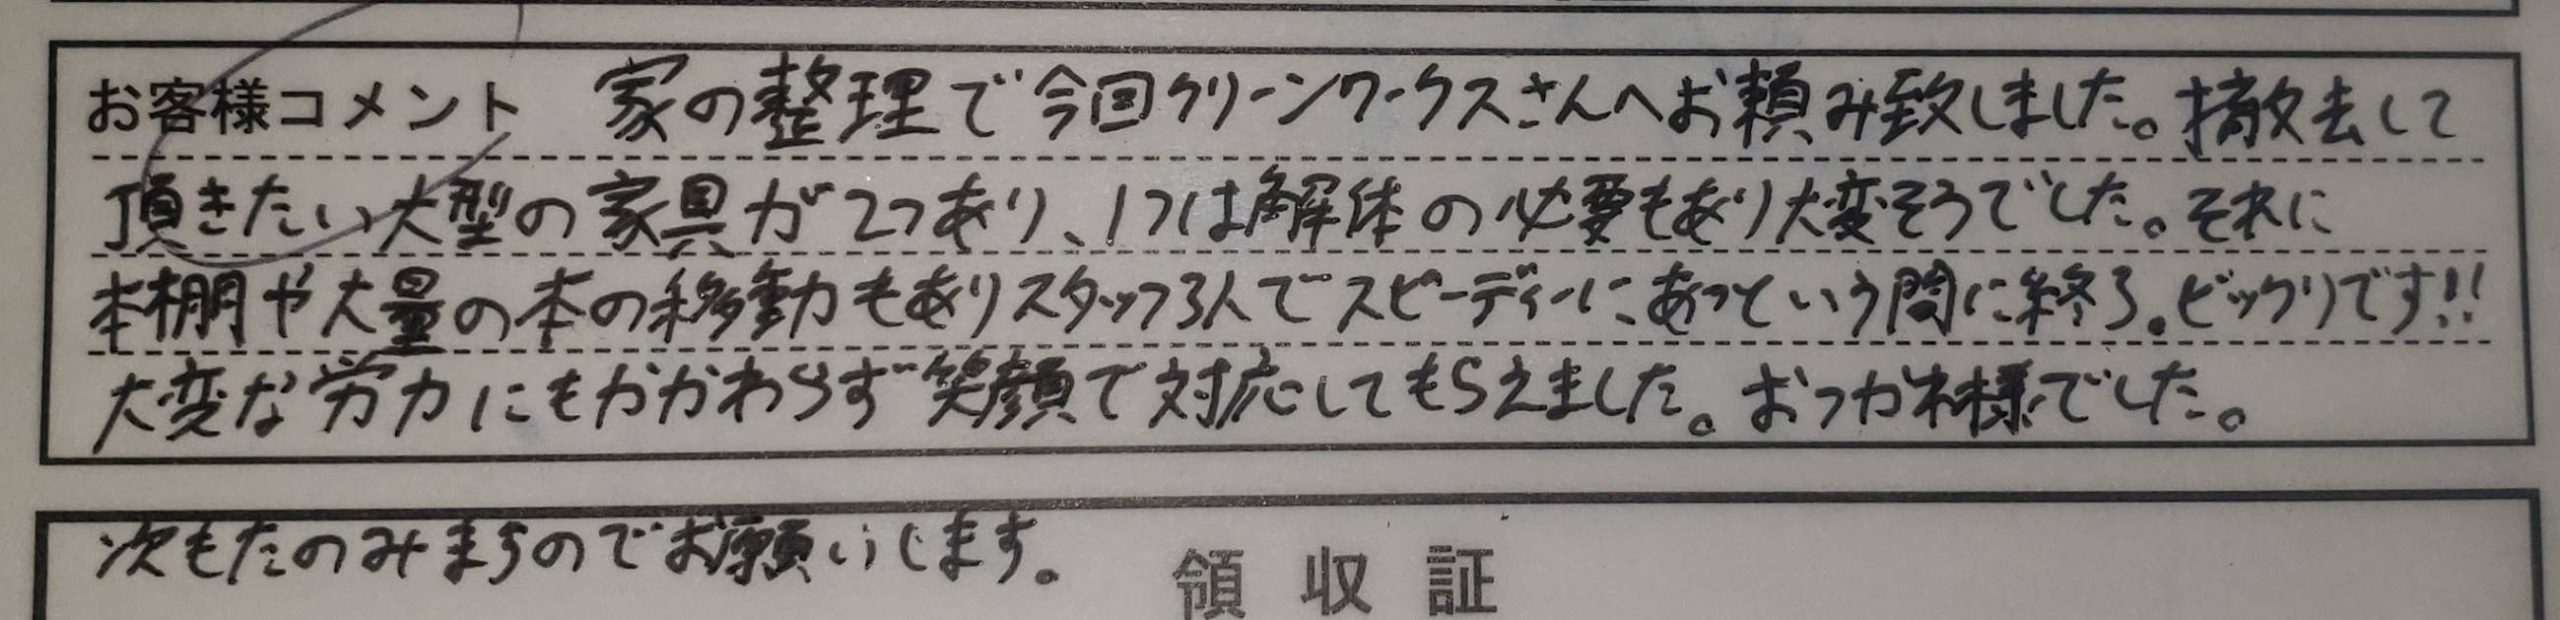 お客様コメント 家の整理で今回クリーンワークスさんへお頼み致しました。撤去して
頂きたい大型の家具が2つあり、1つは解体の必要もあり大変そうでした。それに
本棚や大量の本の移動もありスタッフ3人でスピーディーに、あっという間に終了。ビックリです!!
大変な労力にもかかわらず笑顔で対応してもらえました。おつかれ様でした。
次もたのみますのでお願いします。
領収証